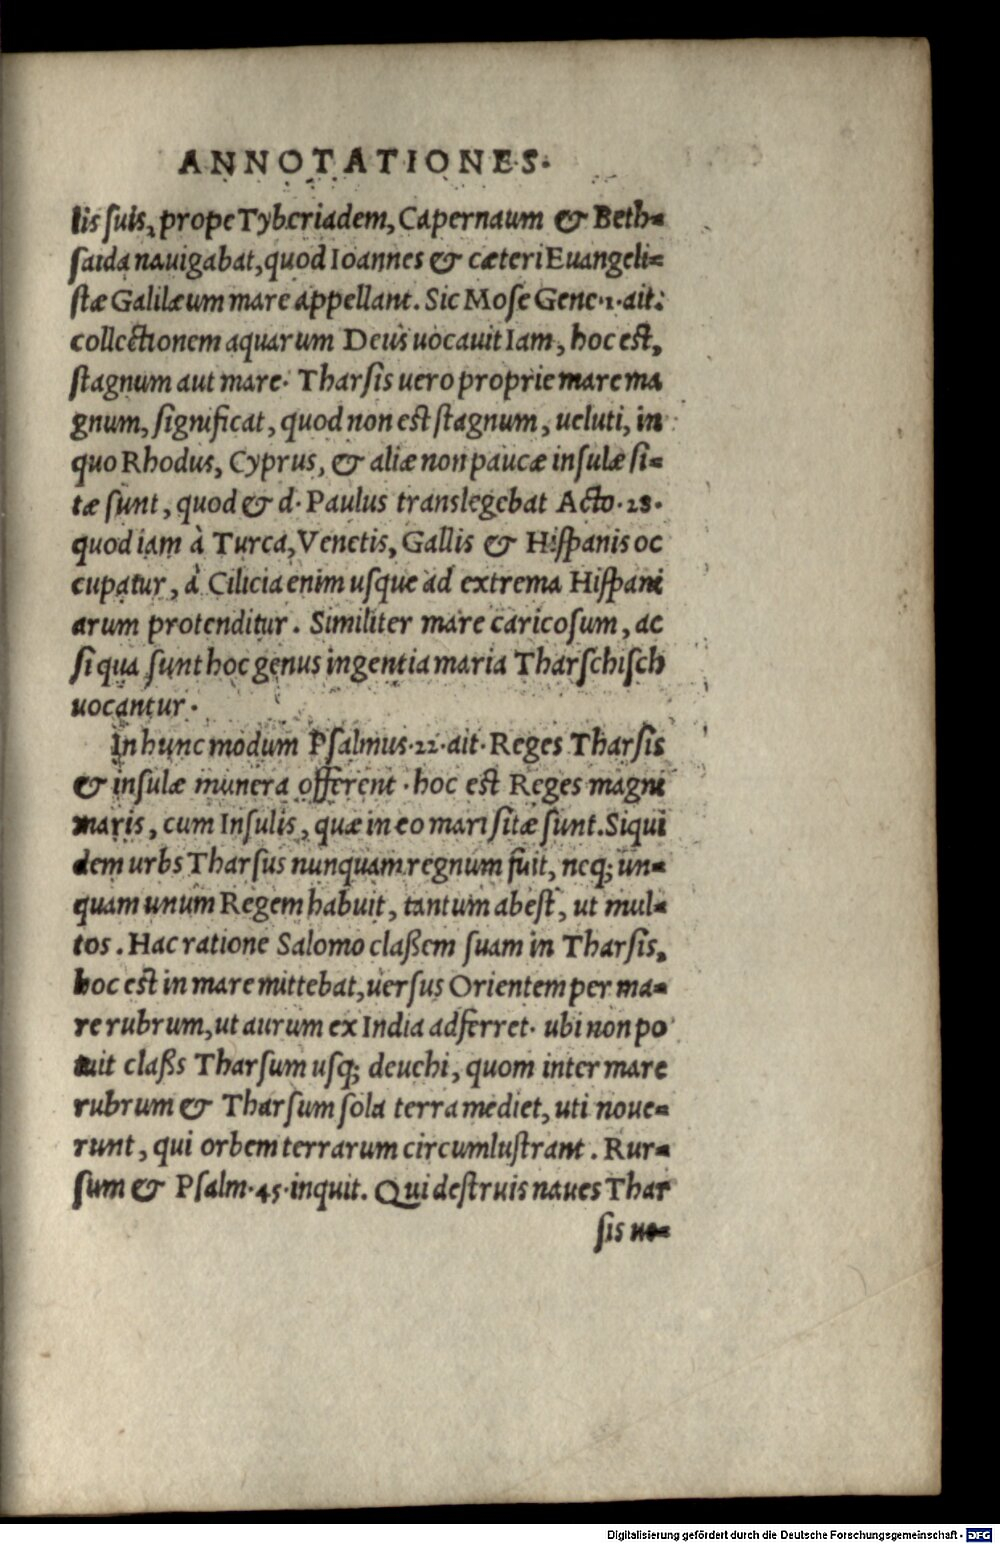 ANNOTATIONES.
lis suis, prope Tyberiadem, Capernaum & Beth-
saida nauigabat, quod Ioannes & cæteri Euangeli-
stæ Galilæum mare appellant. Sic Mose Gene.1. ait:
collectionem aquarum Deus uocauit Iam, hoc est,
stagnum aut mare. Tharsis uero proprie mare ma
gnum, significat, quod non est stagnum, ueluti, in
quo Rhodus, Cyprus, & aliæ non paucæ insulæ si-
tæ sunt, quod & d. Paulus translegebat Acto.28.
quod iam à Turca, Venetis, Gallis & Hispanis oc
cupatur, à Cilicia enim usque ad extrema Hispani
arum protenditur. Similiter mare caricosum, ac
si qua sunt hoc genus ingentia maria Tharschisch
uocantur.
In hunc modum Psalmus.22.ait. Reges Tharsis
& insulæ munera offerent. hoc est Reges magni
maris, cum Insulis, quæ in eo mari sitæ sunt. Siqui
dem urbs Tharsus nunquam regnum fuit, neq; un-
quam unum Regem habuit, tantum abest, ut mul-
tos. Hac ratione Salomo claßem suam in Tharsis,
hoc est in mare mittebat, uersus Orientem per ma-
re rubrum, ut aurum ex India adferret. ubi non po
tuit claßs Tharsum usq; deuehi, quom inter mare
rubrum & Tharsum sola terra mediet, uti noue-
runt, qui orbem terrarum circumlustrant. Rur-
sum & Psalm.45.inquit. Qui destruis naues Thar
sis ue-
Digitalisierung gefördert durch die Deutsche Forschungsgemeinschaft - DFG